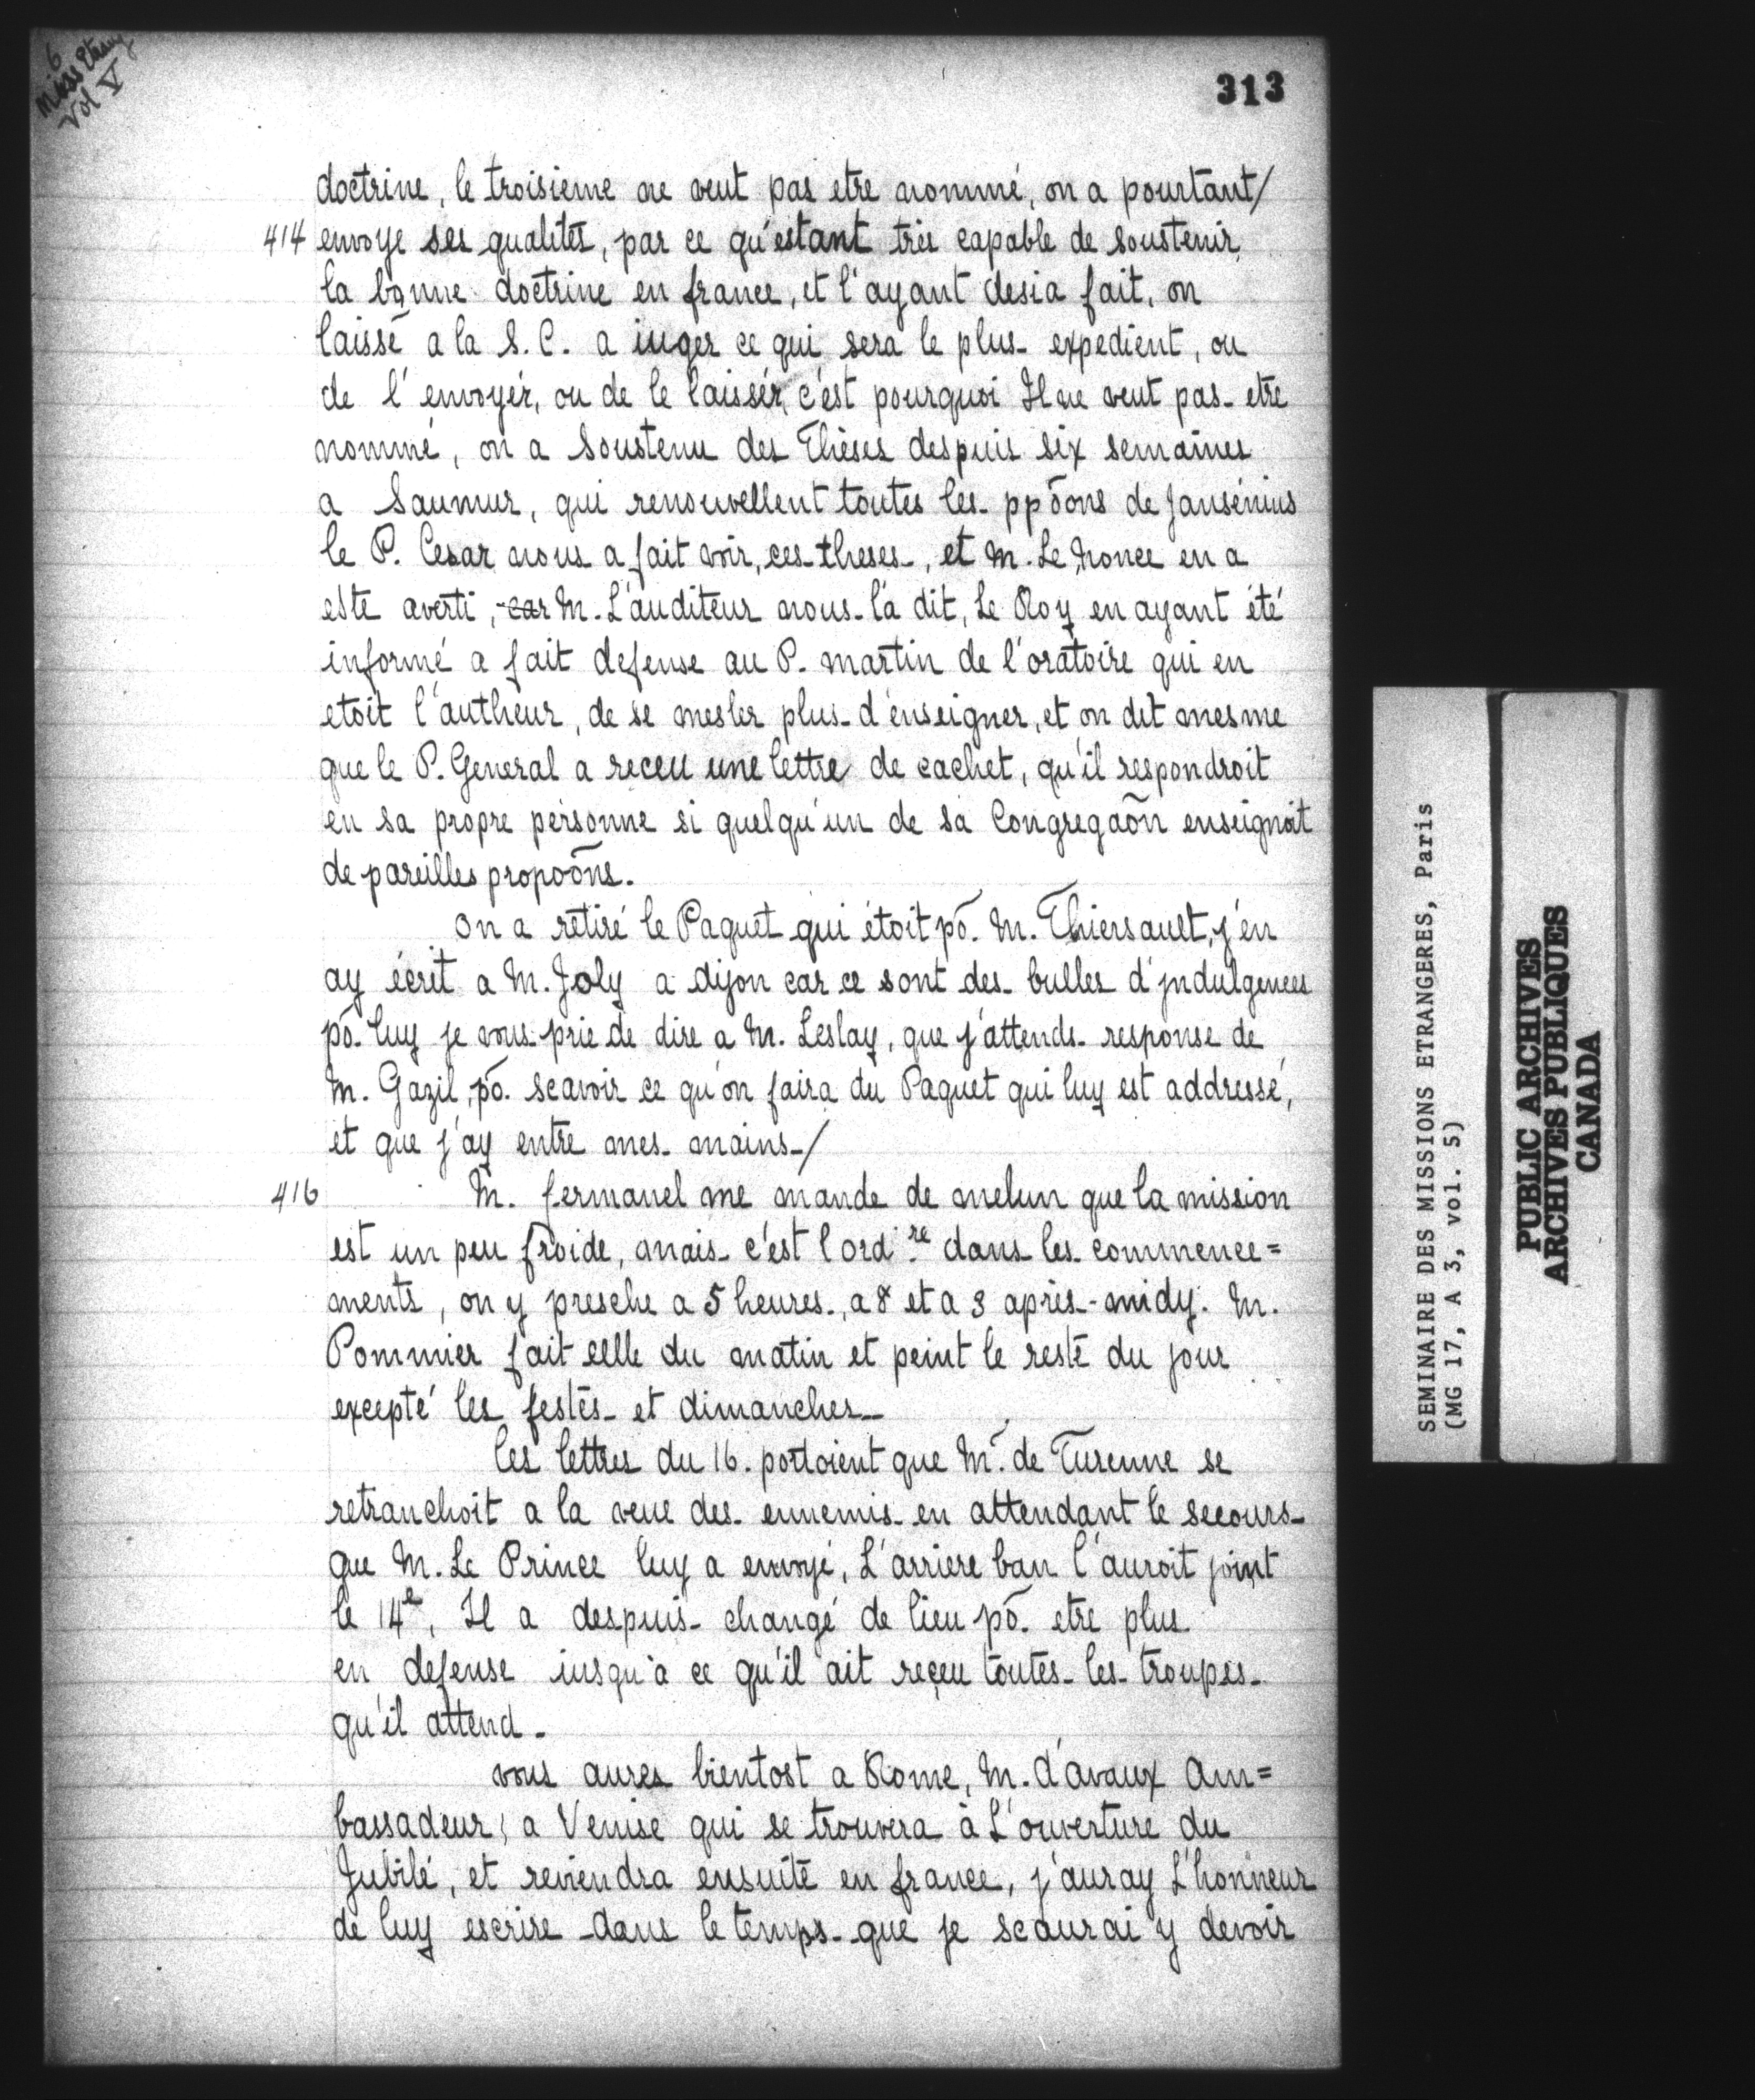 6
Miss Etrang
Vol V
313
doctrine, le troisieme ne veut pas etre nommé, on a pourtant/
414 envoye ses qualités, par ce qu'estant tres capable de soustenir
la bonne doctrine en france, et l'ayant desia fait, on
laisse a la S. C. a iuger ce qui sera le plus expedient, ou
de l'envoyer, ou de le laisser, c'est pourquoi Il ne veut pas etre
nommé, on a Soustenu des Thèses despuis six semaines
a Saumur, qui renouvellent toutes les ppõons de Jansénius
le P. Cesar nous a fait voir, ces theses, et M. Le Nonce en a
este averti, car M. L'auditeur nous l'a dit, Le Roy en ayant été
informé a fait defense au P. martin de l'oratoire qui en
etoit l'autheur, de se mesler plus d'enseigner, et on dit mesme
que le P. General a receu une lettre de cachet, qu'il respondroit
en sa propre personne si quelqu'un de sa Congregaõn enseignoit
de pareilles propoõns.
On a retiré le Paquet qui étoit põ. M. Thiersault, j'en
ay écrit a M. Joly a dijon car ce sont des bulles d'jndulgences
põ. luy je vous prie de dire a M. Leslay, que j'attends response de
M. Gazil, põ. scavoir ce qu'on faira du Paquet qui luy est addressé,
et que j'ay entre mes mains/
416 M. fermanel me mande de melun que la mission
est un peu froide, mais c'est l'ord.re dans les commence=
ments, on y presche a 5 heures, a 8 et a 3 après-midy. M.
Pommier fait celle du matin et peint le reste du jour
excepté les festes et dimanches
les lettres du 16. portoient que Mr. de Turenne se
retranchoit a la veue des ennemis en attendant le secours
que M. Le Prince luy a envoyé, L'arriere ban l'auroit joint
le 14e, Il a despuis changé de lieu põ. etre plus
en defense iusqu'à ce qu'il ait reçeu toutes les troupes
qu'il attend.
vous aures bientost a Rome, M. d'avaux Am=
bassadeur, a Venise qui se trouvera à L'ouverture du
Jubilé, et reviendra ensuite en france, j'auray L'honneur
de luy escrire dans le temps que je scaurai y devoir
SEMINAIRE DES MISSIONS ETRANGERES, Paris
(MG 17, A 3, vol. 5)
PUBLIC ARCHIVES
ARCHIVES PUBLIQUES
CANADA